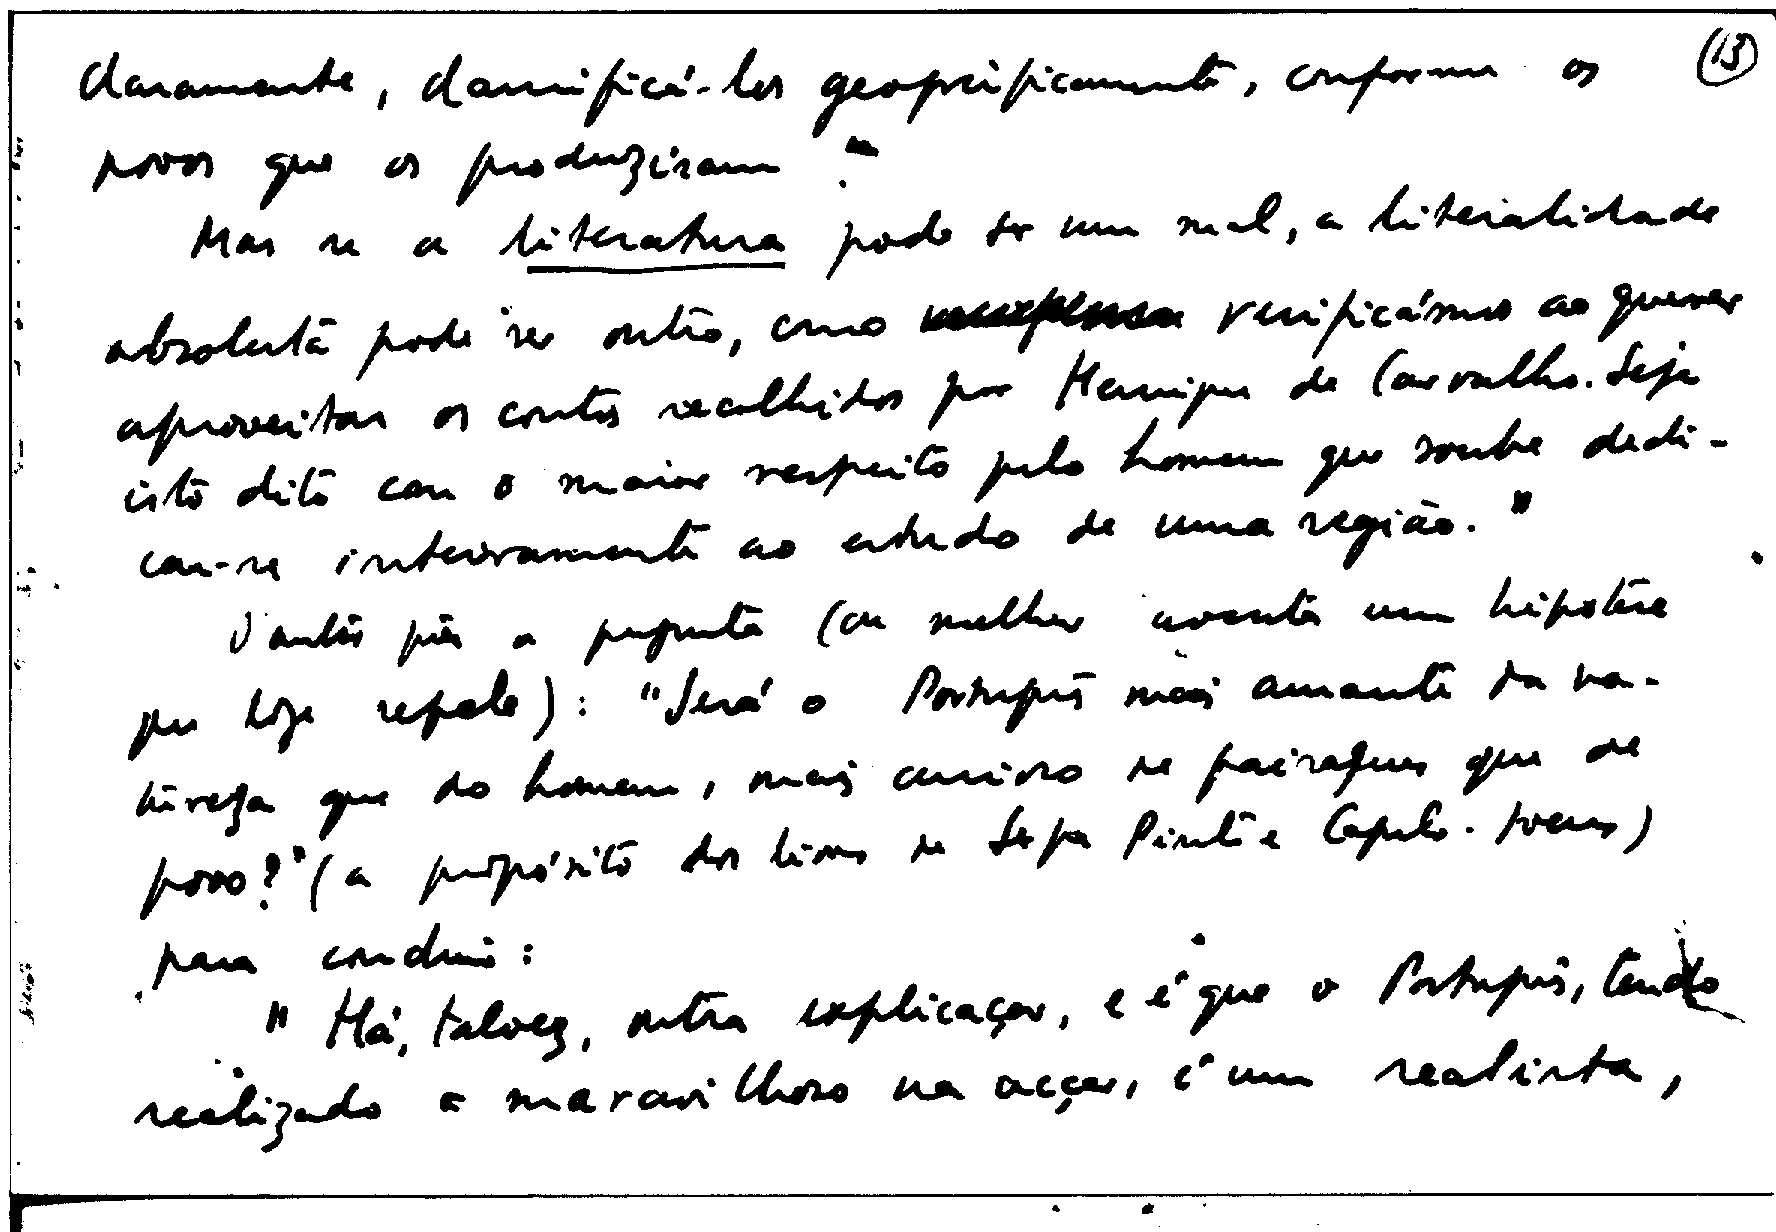 (13)
claramente, classificá-los geogràficamente, conforme os
povos que os produziram?"
Mas se a literatura pode ser um mal, a literalidade
absoluta pode ser outro, como verificámos ao querer
aproveitar os contos recolhidos por Henrique de Carvalho. Seja
isto dito com o maior respeito pelo homem que soube dedi-
car-se inteiramente ao estudo de uma região."
Santos põe a pergunta (ou melhor aventa um hipótese
que hoje repele): "Será o Português mais amante da na-
tureza que do homem, mais curioso de paisagens que de
povo?" (a propósito dos livros de Serpa Pinto e Capelo
para concluir:
" Há, talvez, outra explicação, e é que o Português, tendo
realizado o maravilhoso na acção, é um realista,